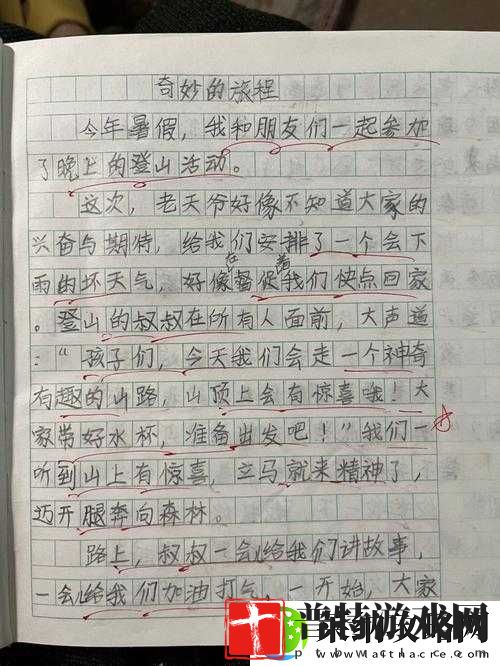 奇妙的旅程
今年暑假，我和朋友们一起参加
了晚上的登山活动。
这次，老天爷好像不知道大家的
兴奋与期待，给我们安排了一个会下
雨的坏天气，好像在督促着我们快点回家
。登山的叔叔在所有人面前，大声道
：“孩子们，今天我们会走一个神奇
有趣的山路，山顶上会有惊喜哦！大
家带好水杯，准备出发吧！”我们一
听到山上有惊喜，立马就来精神了，
迈开腿奔向森林。
路上，叔叔一会给我们讲故事，
一会给我们加油打气，一开始，大家
www.matthacre.com